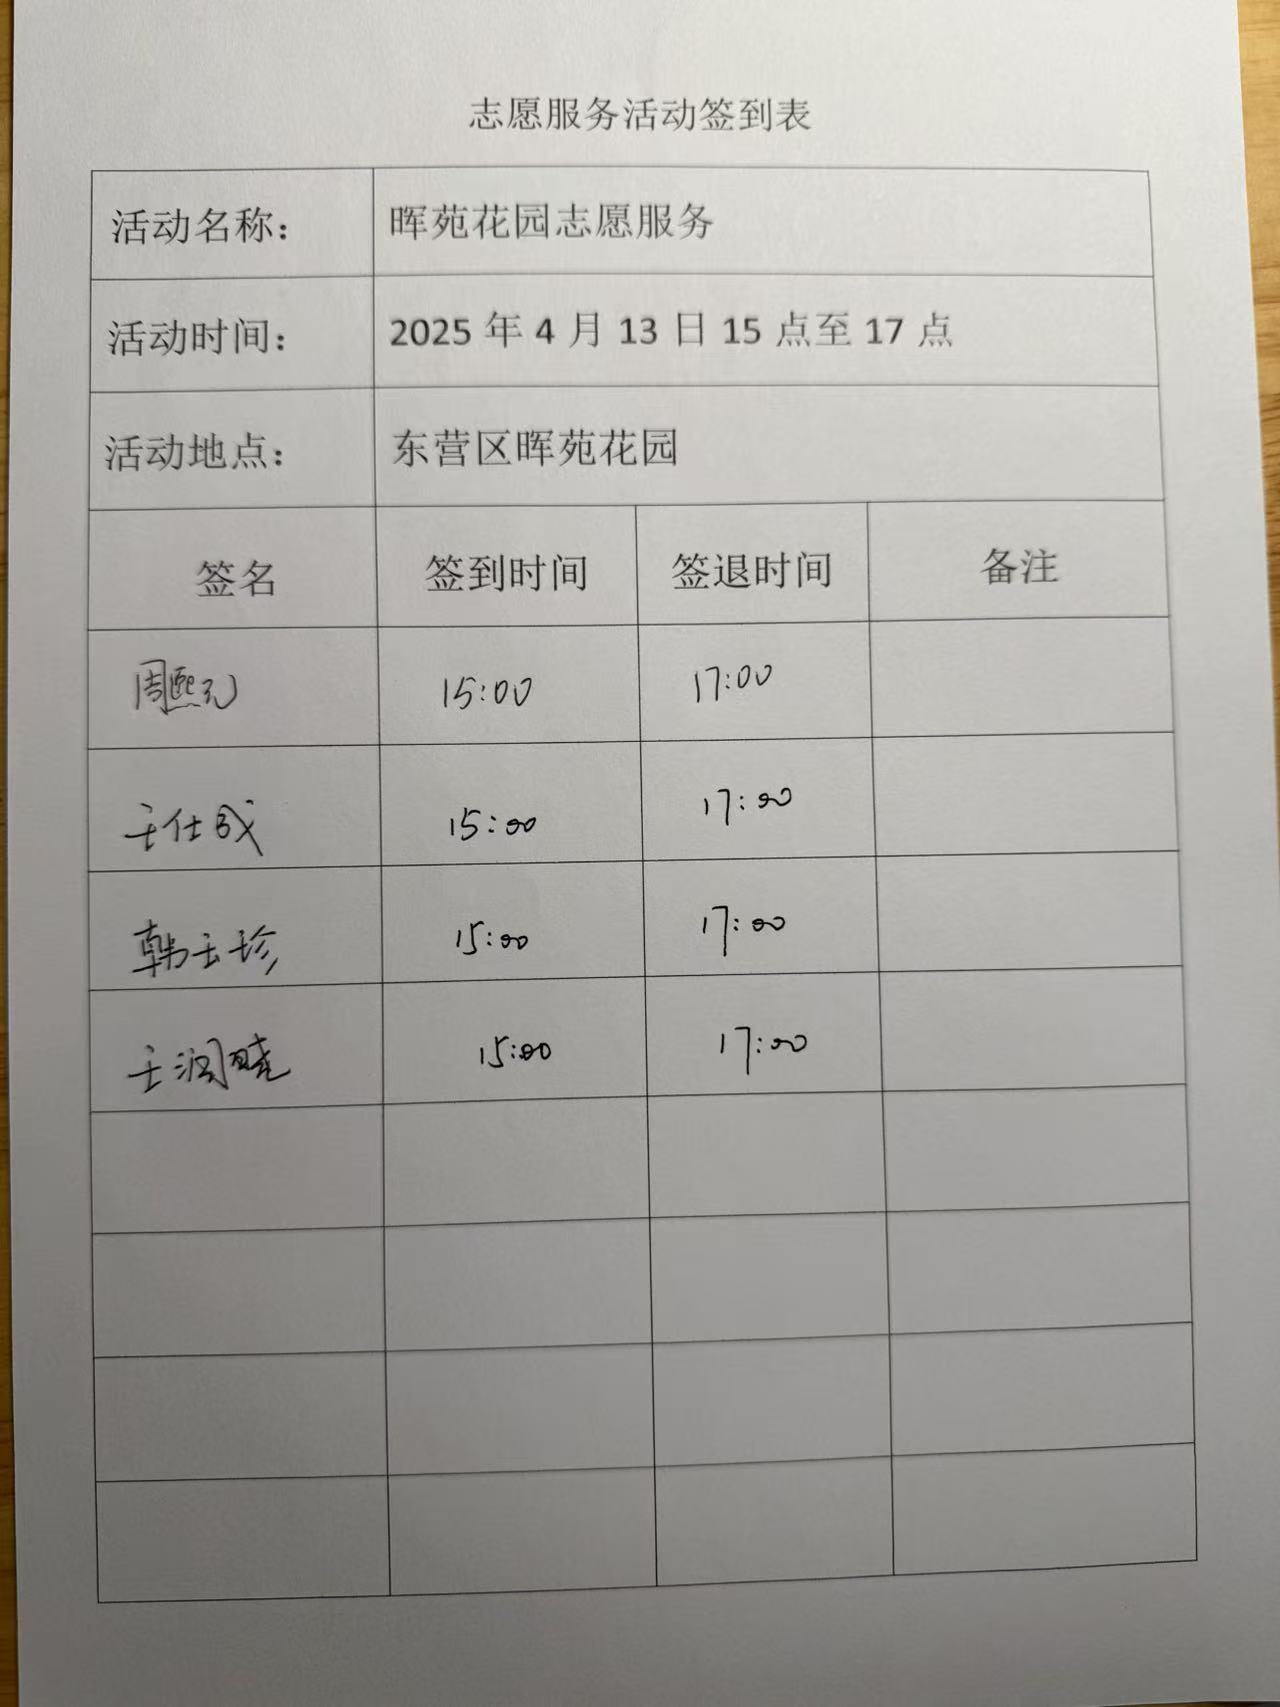 志愿服务活动签到表
活动名称： 晖苑花园志愿服务
活动时间： 2025 年 4 月 13 日 15 点至 17 点
活动地点： 东营区晖苑花园
签名 签到时间 签退时间 备注
周熙元 15:00 17:00
王仕成 15:00 17:00
韩玉珍 15:00 17:00
王润晓 15:00 17:00